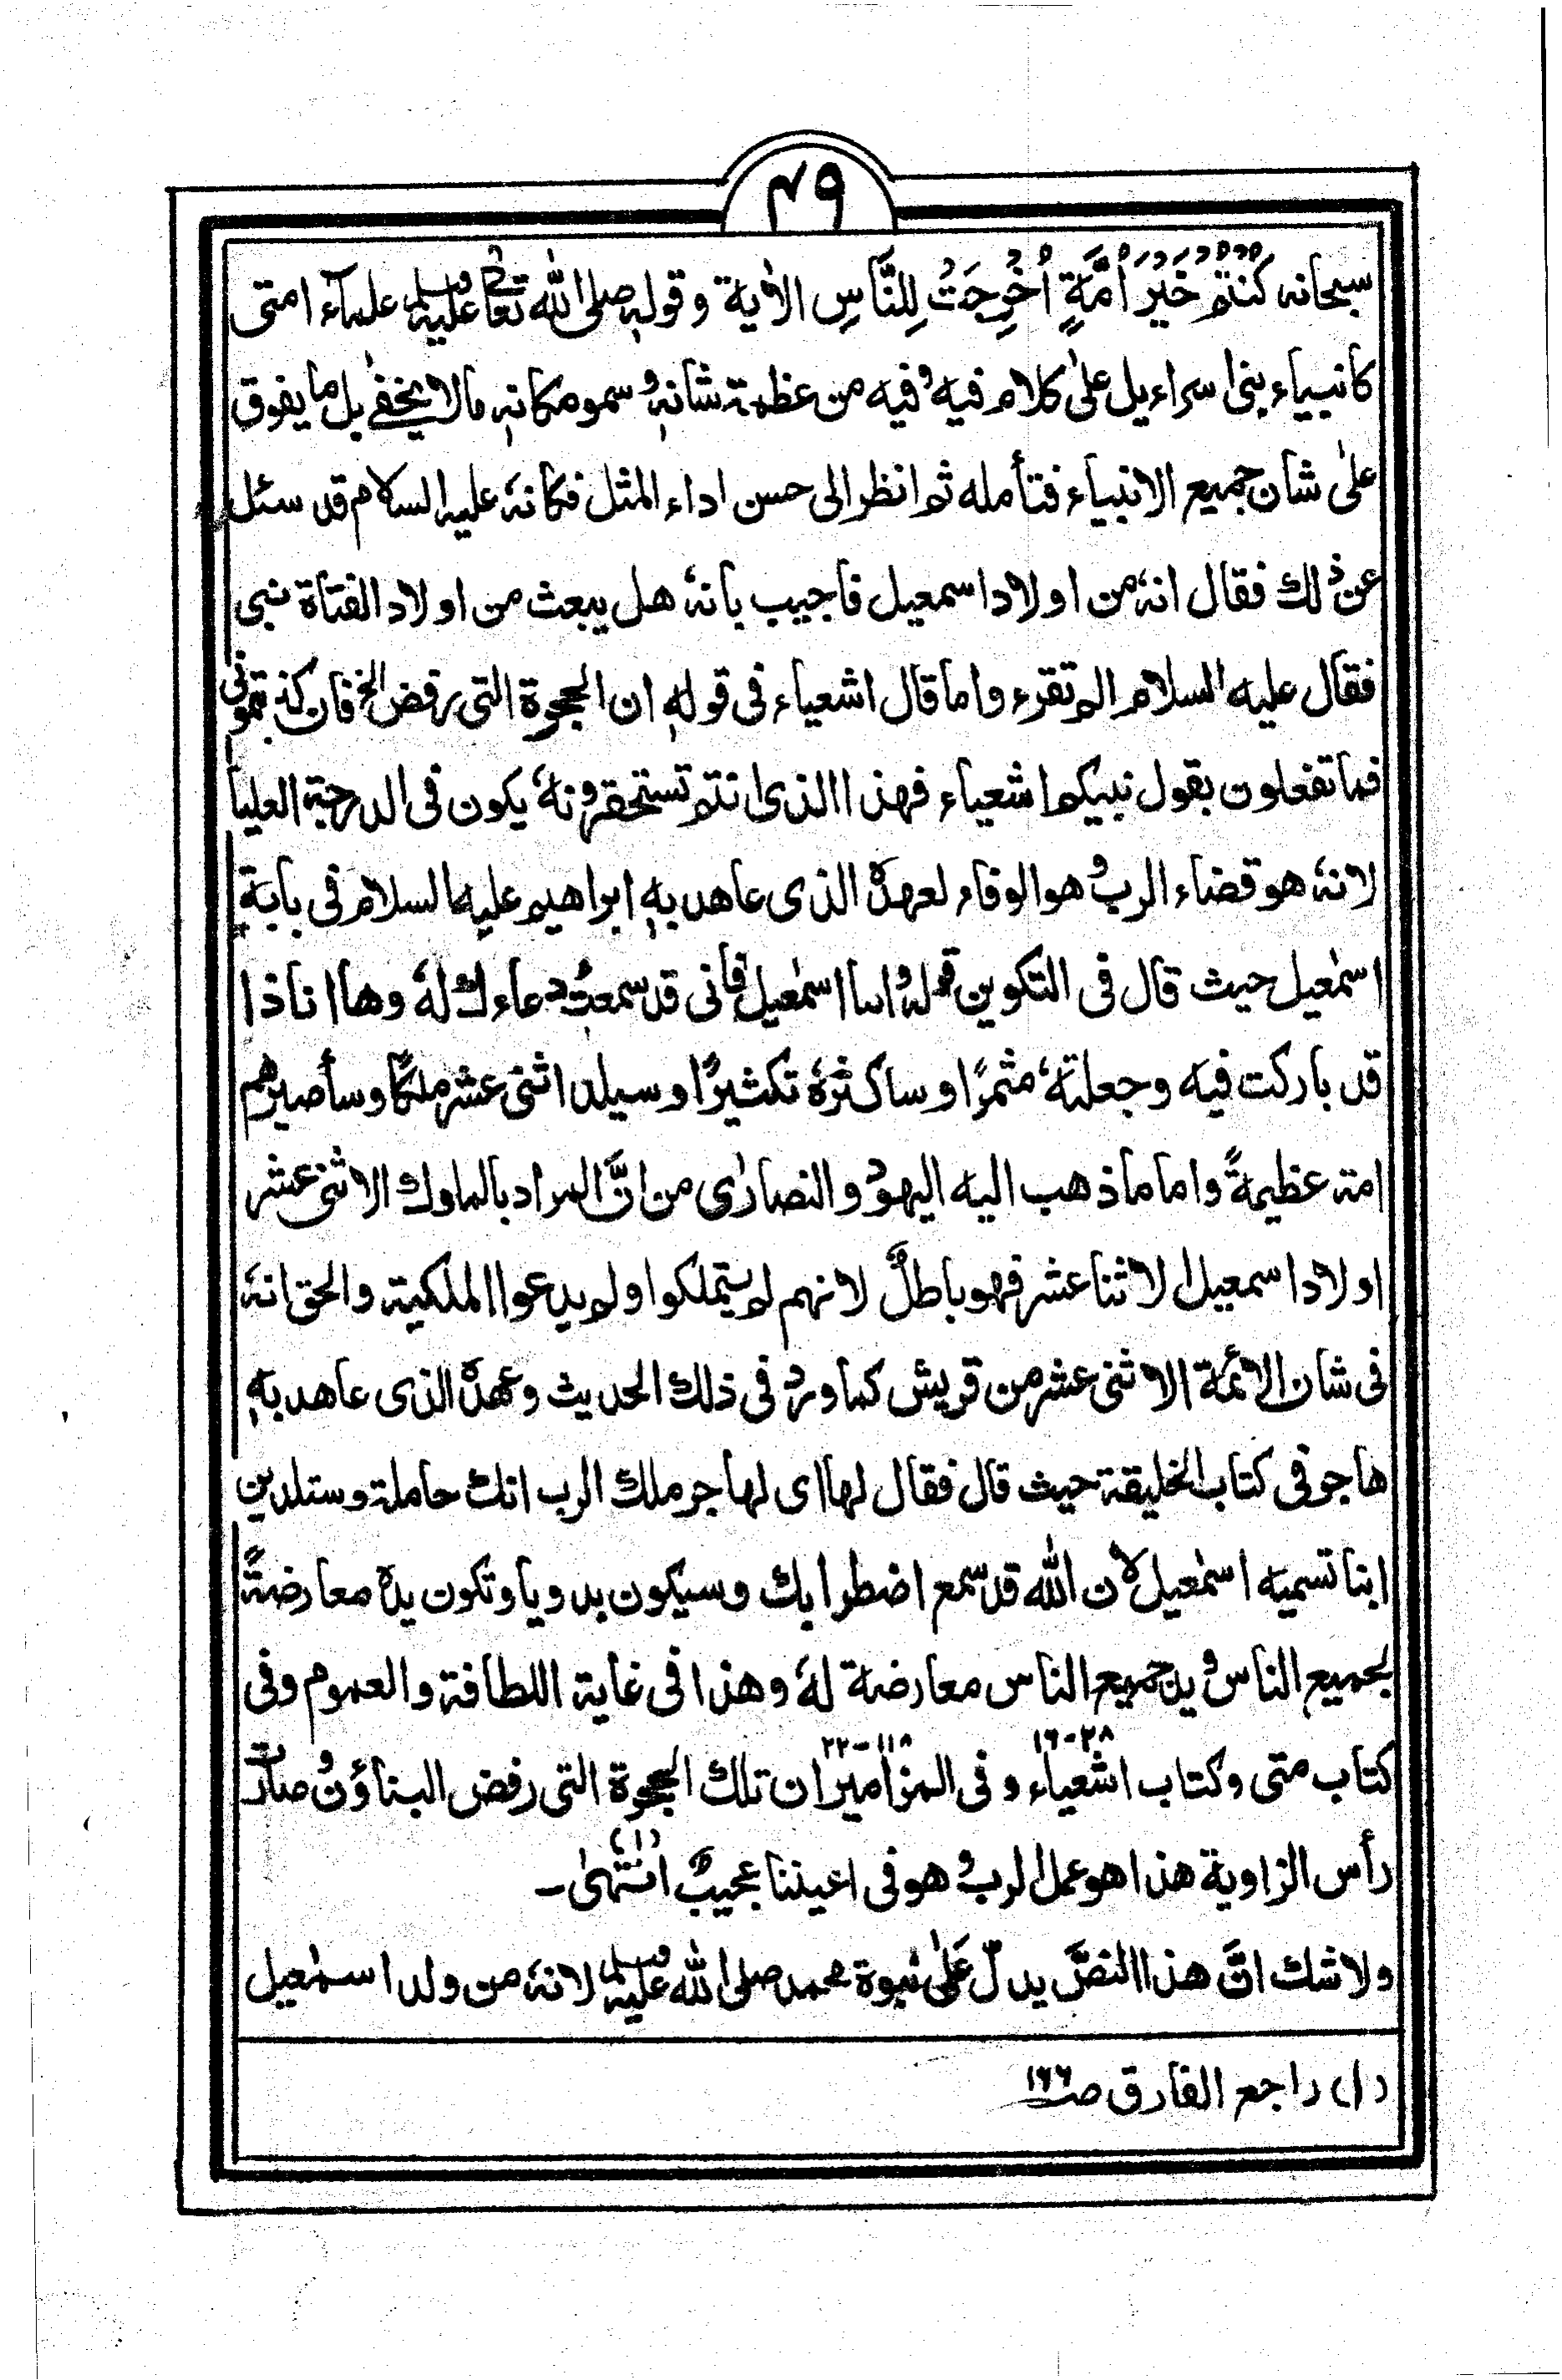 ۴۹
سبحانه كُنتُم خَيرَ أُمَّةٍ أُخرِجَتْ لِلنَّاسِ الاٰية وقولهٖ صلى الله تعالٰى عليه وسلم علمآء امتى
كانبياء بنى اسراءيل علىٰ كلام فيه وفيه من عظمة شانهٖ وسمو مكانهٖ مالا يخفىٰ بل ما يفوق
علىٰ شان جميع الانبياء فتأمله ثم انظر الى حسن اداء المثل فكانهٗ عليه السلام قد سئل
عن ذٰلك فقال انهٗ من اولاد اسمعيل فاجيب بانهٗ هل يبعث من اولاد الفتاة نبى
فقال عليه السلام الم تقرء واما قال اشعياء فى قولهٖ ان الحجرة التى رفض الخ فان كذبتمونى
فما تفعلون بقول نبيكم اشعياء فهذا الذى انتم تستحقرونهٗ يكون فى الدرجة العليا
لانهٗ هو قضاء الرب وهو الوفاء لعهده الذى عاهد بهٖ ابراهيم عليه السلام فى باية
اسمٰعيل حيث قال فى التكوين قوله واما اسمٰعيل فانى قد سمعت دعاءك لهٗ وها انا ذا
قد باركت فيه وجعلتهٗ مثمرًا وساكثرهٗ تكثيرًا وسيلد اثنى عشر ملكًا وسأصيرهم
امة عظيمةً واما ما ذهب اليه اليهود والنصارٰى من انَّ المراد بالملوك الاثنى عشر
اولاد اسمعيل الاثنا عشر فهو باطلٌ لانهم لم يتملكوا ولم يدعوا الملكية والحق انهٗ
فى شان الائمة الاثنى عشر من قريش كما ورد فى ذلك الحديث وعهده الذى عاهد بهٖ
هاجر فى كتاب الخليقة حيث قال فقال لها اى لهاجر ملك الرب انك حاملة وستلدين
ابنا تسميه اسمٰعيل لان الله قد سمع اضطرابك وسيكون بدويا وتكون يده معارضةً
لجميع الناس ويد جميع الناس معارضة لهٗ وهذا فى غاية اللطافة والعموم وفى
كتاب متى وكتاب اشعياء ٢٨-١٦ وفى المزامير ١١٨-٢٢ ان تلك الحجرة التى رفض البناؤن وصارت
رأس الزاوية هذا هو عمل الرب وهو فى اعيننا عجيبٌ انتهىٰ (١) ـ
ولا شك انَّ هذا النصَّ يدلّ عَلىٰ نبوة محمد صلى الله عليه وسلم لانهٗ من ولد اسمٰعيل
(١) راجع الفارق صـ ١٦٦